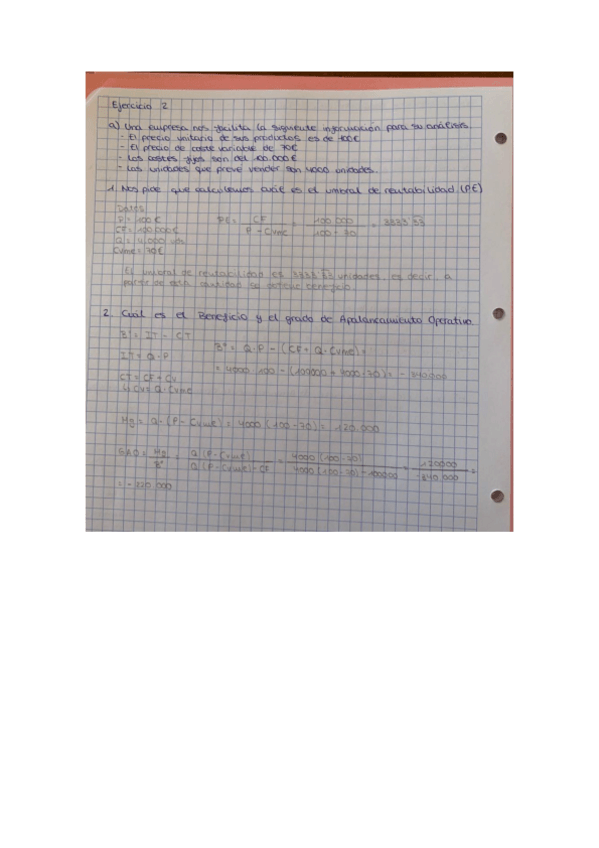 Ejercicio 2
a) Una empresa nos facilita la siguiente información para su análisis.
- El precio unitario de sus productos es de 100€
- El precio de coste variable de 70€
- Los costes fijos son del 100.000€
- Las unidades que preve vender son 4000 unidades.
1. Nos pide que calculemos cuál es el umbral de rentabilidad (PE)
Datos
P = 100€
CF = 100.000€
Q = 4.000 uds
CVme = 70€
PE = CF / P - CVme = 100.000 / 100 - 70 = 3333'33
El umbral de rentabilidad es 3333'33 unidades, es decir, a
partir de esta cantidad se obtiene beneficio.
2. Cuál es el Beneficio y el grado de Apalancamiento Operativo.
Bº = IT - CT
IT = Q·P
CT = CF + CV
↳ CV = Q·CVme
Bº = Q·P - (CF + Q·CVme) =
= 4000·100 - (100000 + 4000·70) = - 340.000
Mg = Q·(P - CVme) = 4000 (100 - 70) = 120.000
GAO = Mg / Bº = Q(P - CVme) / Q(P - CVme) - CF = 4000 (100 - 70) / 4000 (100 - 70) - 100000 = 120000 / -340.000 =
= - 220.000